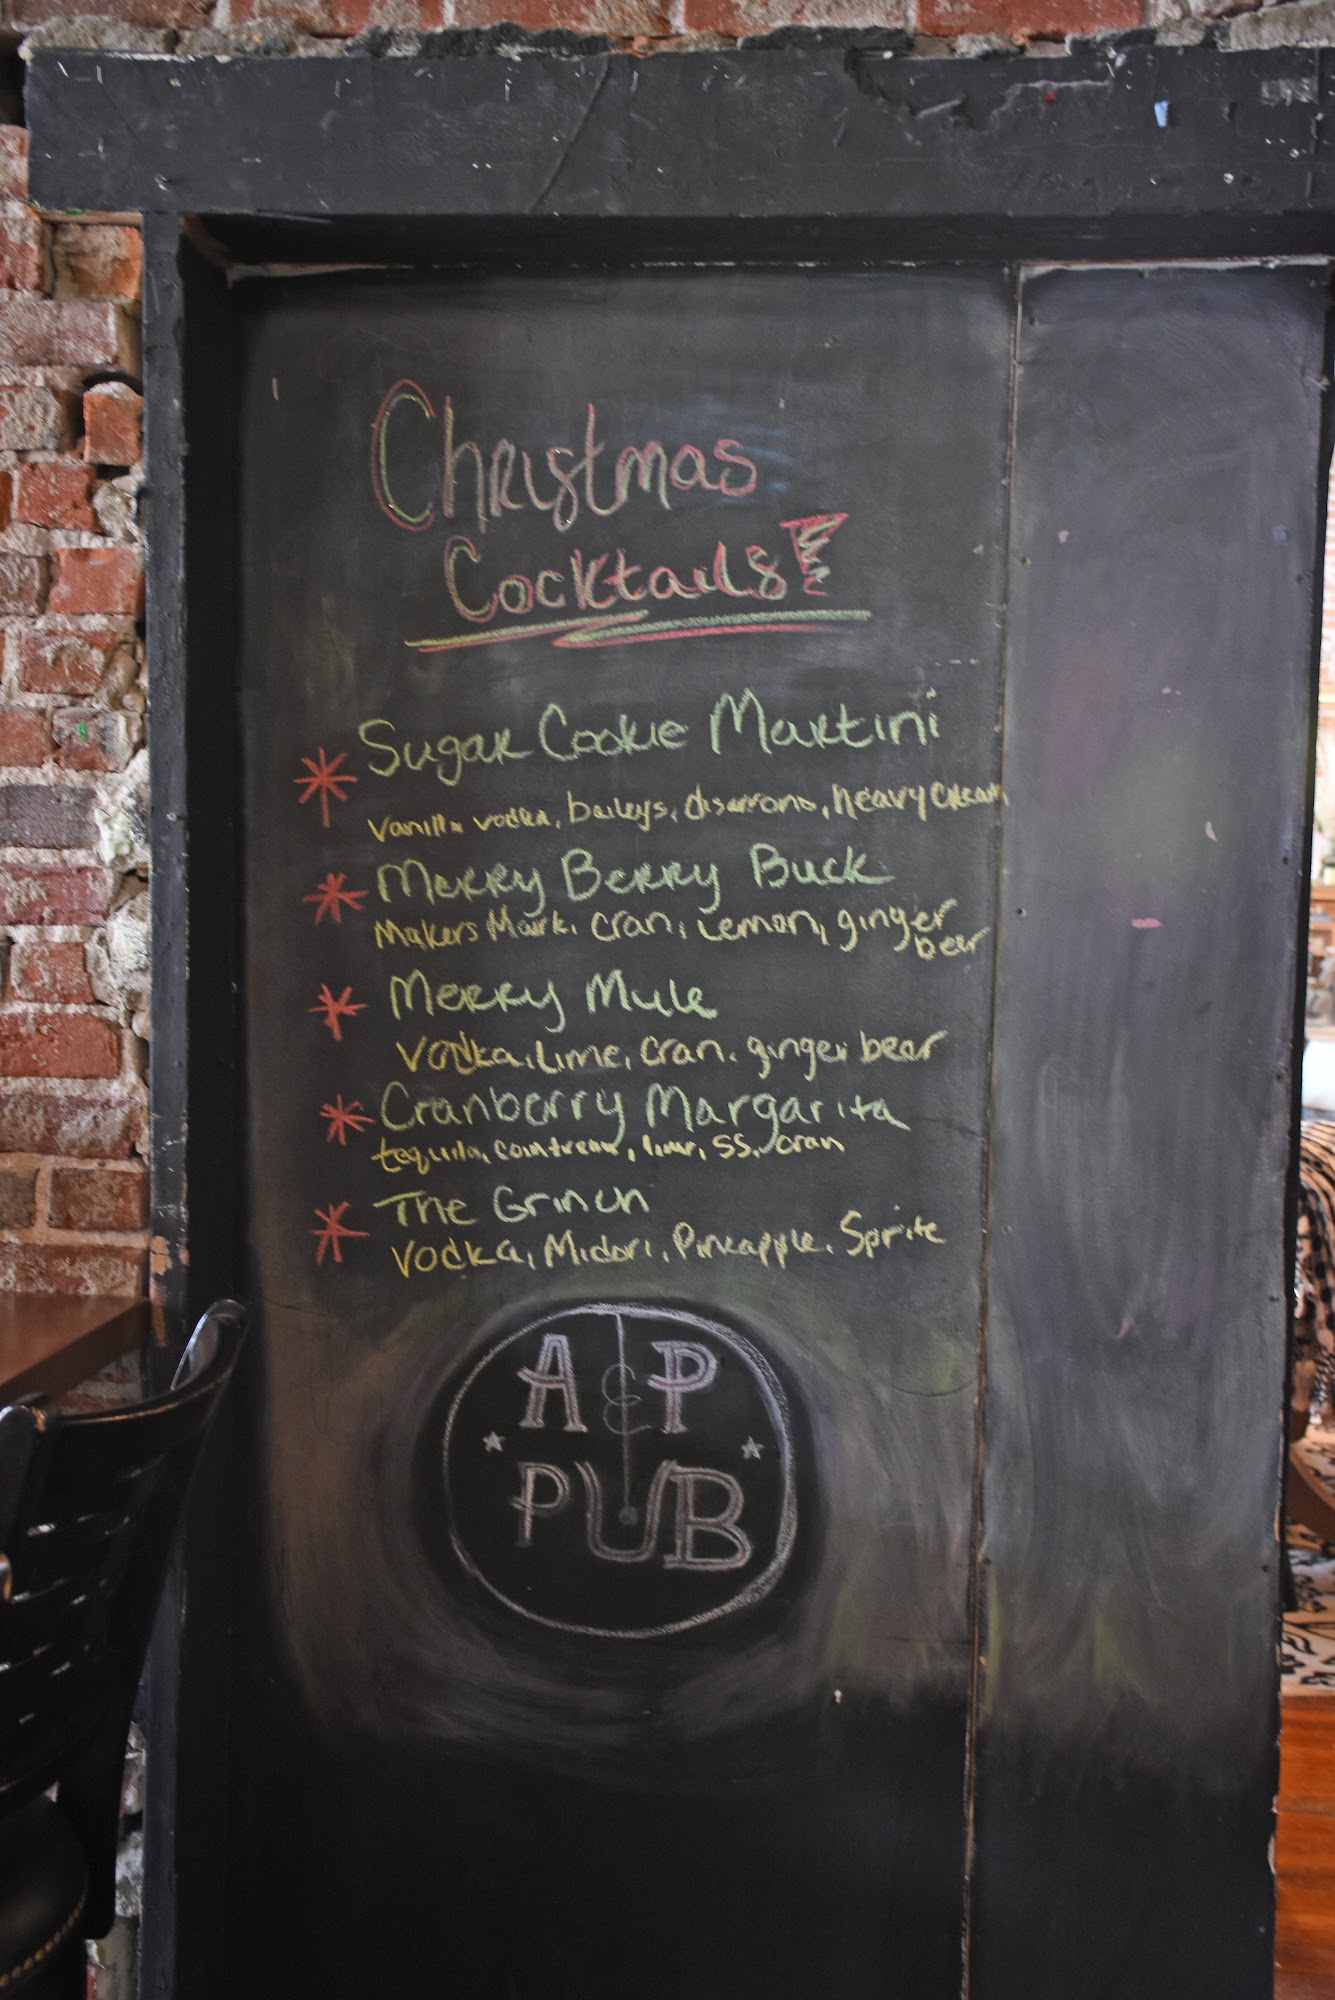 Christmas
Cocktails!
Sugar Cookie Martini
Vanilla vodka, baileys, disarrono, heavy cream
Merry Berry Buck
Makers Mark, cran, Lemon, ginger
beer
Merry Mule
Vodka, Lime, cran, ginger beer
Cranberry Margarita
tequila, cointreau, lime, SS, cran
The Grinch
Vodka, Midori, Pineapple, Sprite
A & P
PUB